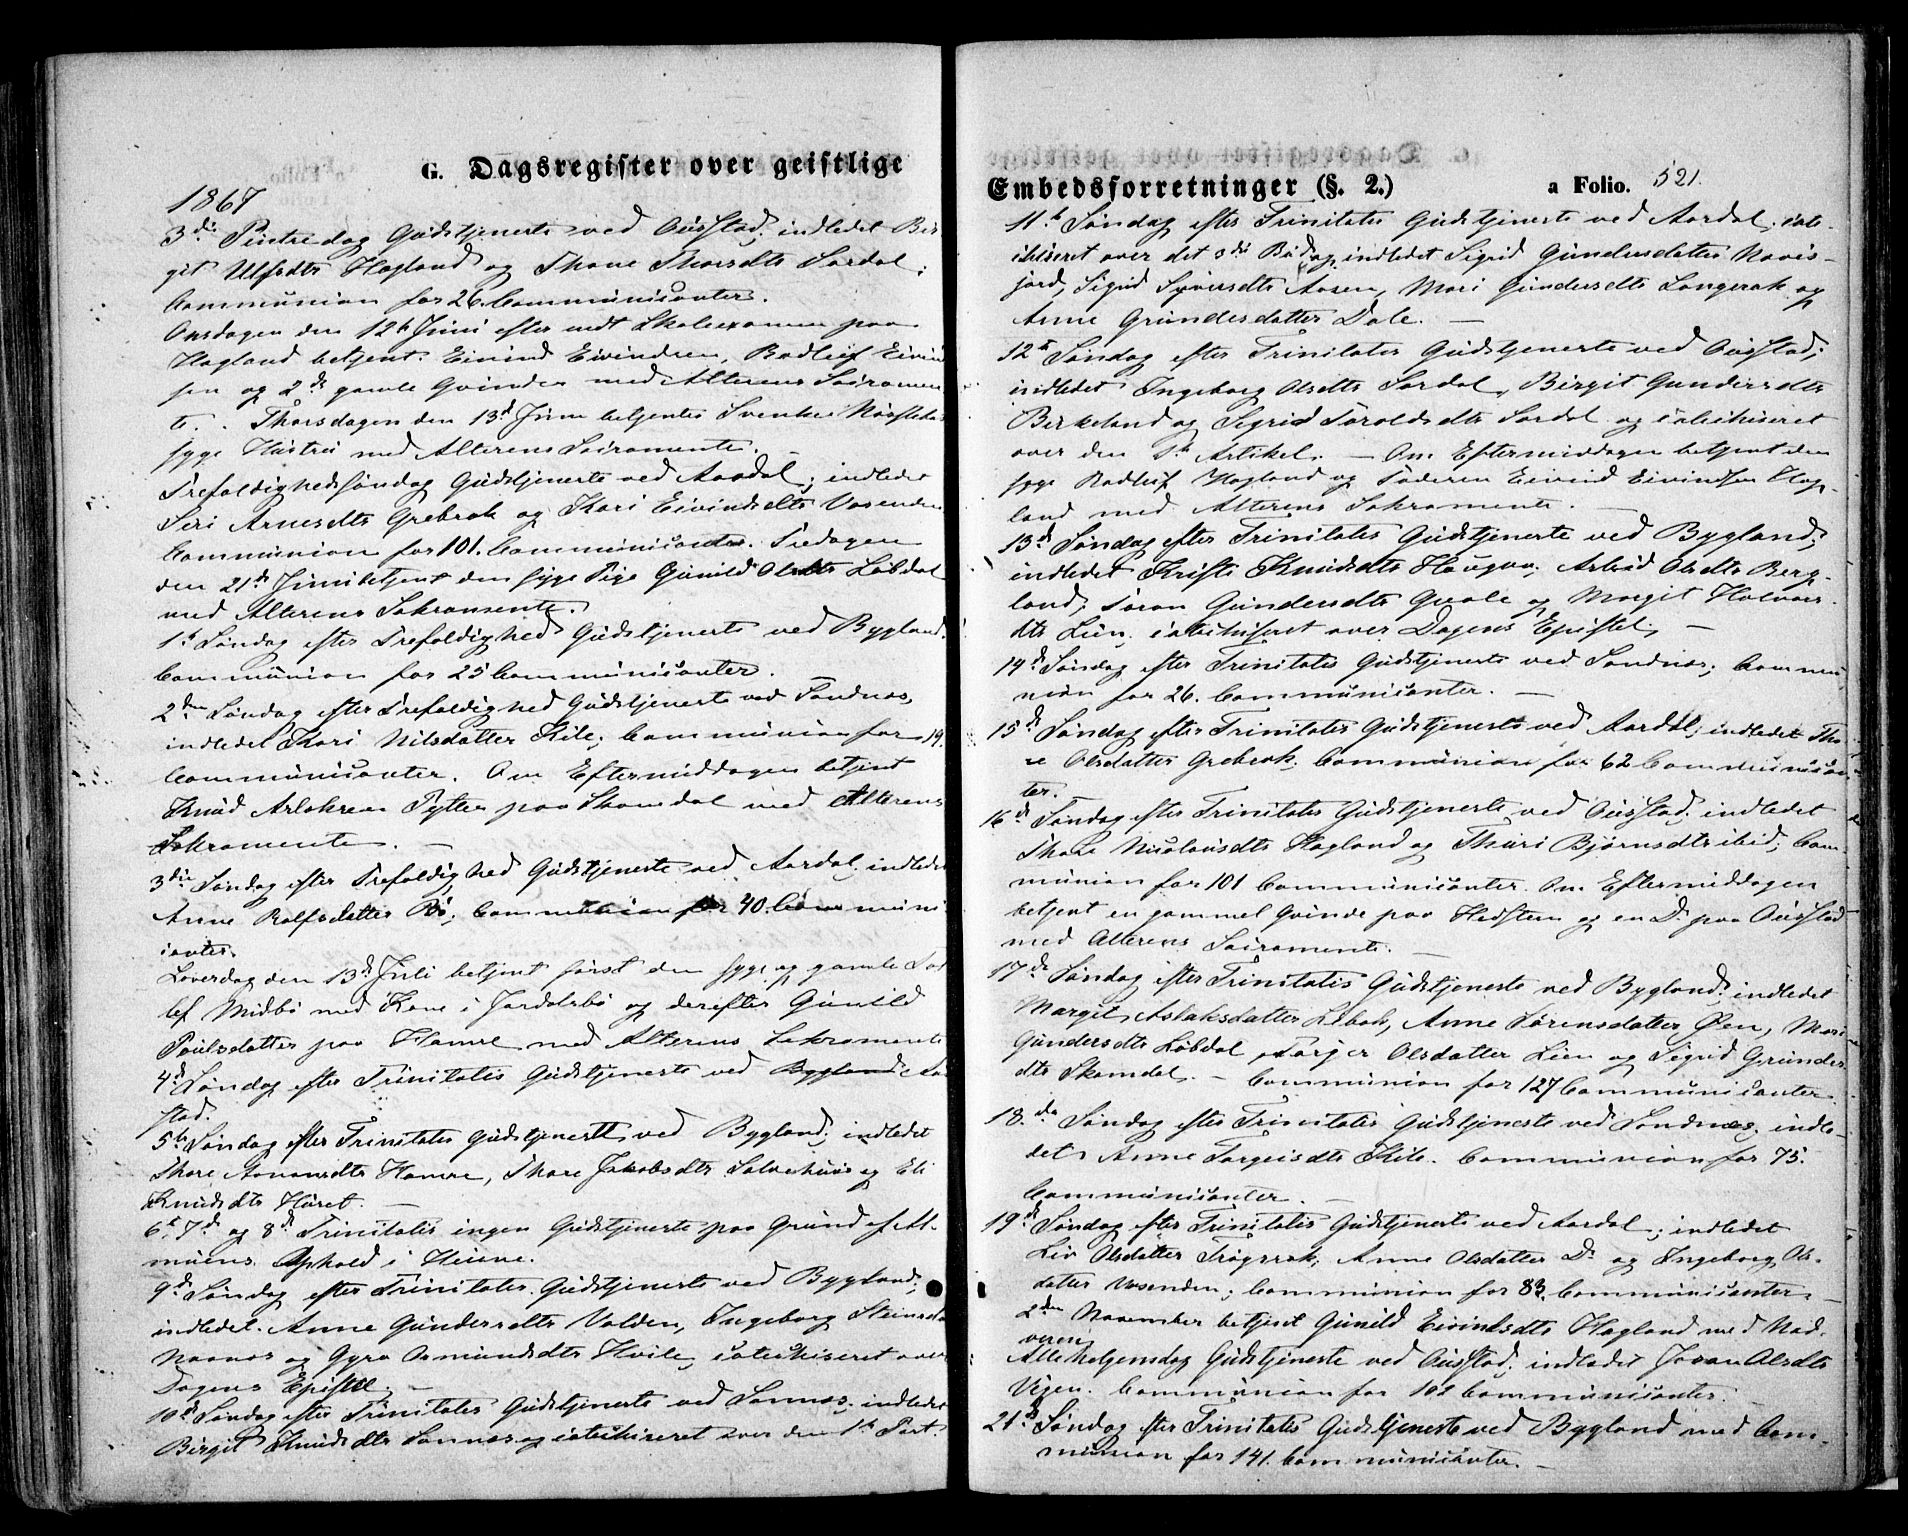 G. Dagsregister over geistlige
1867
3die Pintsedag Gudstjeneste ved Ousstad; indledet Bir-
git Ulfsdtr Hagland og Thone Thorsdtr Sordal;
Communion for 26 Communicanter.
Onsdagen den 12te Juni efter endt Skoleexamen paa
Hagland betjent Eivind Eivindsen, Rodleif Eivind
sen og 2de gamle Qvinder med Alterens Sacramen
te. Thorsdagen den 13de Juni betjentes Svenke
syge Hustru med Alterens Sacramente.
Trefoldighedssøndag Gudstjeneste ved Aardal; indledet
Seri Arnesdtr Grebrok og Kari Eivindsdtr Vasenden
Communion for 101. Communicanter. Fredagen
den 21de Juni betjent den syge Pige Gunild Olsdtr Løbdal
med Alterens Sakramente.
1te Søndag efter Trefoldighed Gudstjeneste ved Bygland.
Communion for 25 Communicanter.
2den Søndag efter Trefoldighed Gudstjeneste ved Sandnes,
indledet Kari Nilsdatter Kile; Communion for 19.
Communicanter. Om Eftermiddagen betjent
Knud Aslaksen Tytter paa Skomdal med Alterens
Sakramente. —
3die Søndag efter Trefoldighed Gudstjeneste ved Aardal; indledet
Anne Rolfsdatter Bø; Communion for 40. Communi
canter.
Løverdag den 13de Juli betjent først den syge og gamle
lef Midbø med Kone i Jordalsbø og derefter Gunild
Poulsdatter paa Hamre med Alterens Sakramente
4de Søndag efter Trinitatis Gudstjeneste ved Bygland
stad.
5te Søndag efter Trinitatis Gudstjeneste ved Bygland; indledet
Thore Aanonsdtr Hamre, Thore Jakobsdtr og Eli
Knudsdtr Horet. —
6te, 7de og 8de Trinitatis ingen Gudstjeneste paa Grund af Al-
muens Ophold i Heiene.
9de Søndag efter Trinitatis Gudstjeneste ved Bygland;
indledet Anne Gundersdtr Valden, Ingeborg Steinsdtr
og Gyro Osmundsdtr Hvile; catechiseret over
Dagens Epistel; —
10de Søndag efter Trinitatis Gudstjeneste ved Sannes; indledet
Birgit Knudsdtr Sannes og catechiseret over den 1te Part.
Embedsforretninger (§. 2.) a Folio. 521.
11te Søndag efter Trinitatis Gudstjeneste ved Aardal; cate-
chiseret over det 3die Bud og indledet Sigrid Gundersdatter
jord, Sigrid Syversdtr Aasen, Mari Gundersdtr Langerak og
Anne Grundesdatter Dale. —
12te Søndag efter Trinitatis Gudstjeneste ved Ousstad;
indledet Ingeborg Olsdtr Sordal, Birgit Gundersdtr
Birkeland og Sigrid Toroldsdtr Sordal og catechiseret
over den Artikel. — Om Eftermiddagen betjent den
syge Rodleif Hagland og Faderen Eivind Eivindsen Hag-
land med Alterens Sakramente. —
13de Søndag efter Trinitatis Gudstjeneste ved Bygland;
indledet Kristi Knudsdtr Haugaa, Asbid Olsdtr Berg-
land, Søran Gundersdtr Qvale og Margit Halvors-
dtr Lien; catechiseret over Dagens Epistel. —
14de Søndag efter Trinitatis Gudstjeneste ved Sandnes; Commu
nion for 26. Communicanter. —
15de Søndag efter Trinitatis Gudstjeneste ved Aardal; indledet Tho-
re Olsdatter Grebrok; Communion for 62 Communican-
ter. —
16de Søndag efter Trinitatis Gudstjeneste ved Ousstad; indledet
Thore Nicolausdtr Hagland og Thuri Bjørnsdtr ibid; Com-
munion for 101 Communicanter. Om Eftermiddagen
betjent en gammel Qvinde paa Hedstem og en Do paa Ousstad
med Alterens Sacramente. —
17de Søndag efter Trinitatis Gudstjeneste ved Bygland; indledet
Margit Aslaksdatter Libok, Anne Sørensdatter Øen, Mari
Gundersdtr Løbdal, Torjer Olsdatter Lien og Sigrid Grunder-
dtr Skomdal. — Communion for 127 Communicanter
18.de Søndag efter Trinitatis Gudstjeneste ved Sandnes; indle-
det Anne Torgeisdtr Kile. Communion for 75.
Communicanter. —
19de Søndag efter Trinitatis Gudstjeneste ved Aardal; indledet
Liv Olsdatter Frøgsrok, Anne Olsdatter Do og Ingeborg Ols-
datter Vasenden; Communion for 83. Communicanter. —
2den November betjent Gunild Eivindsdtr Hagland med Nad-
veren
Allehelgensdag Gudstjeneste ved Ousstad; indledet Joran Olsdtr
Vejen. Communion for 102 Communicanter.
21de Søndag efter Trinitatis Gudstjeneste ved Bygland med Com-
munion for 141. Communicanter. —